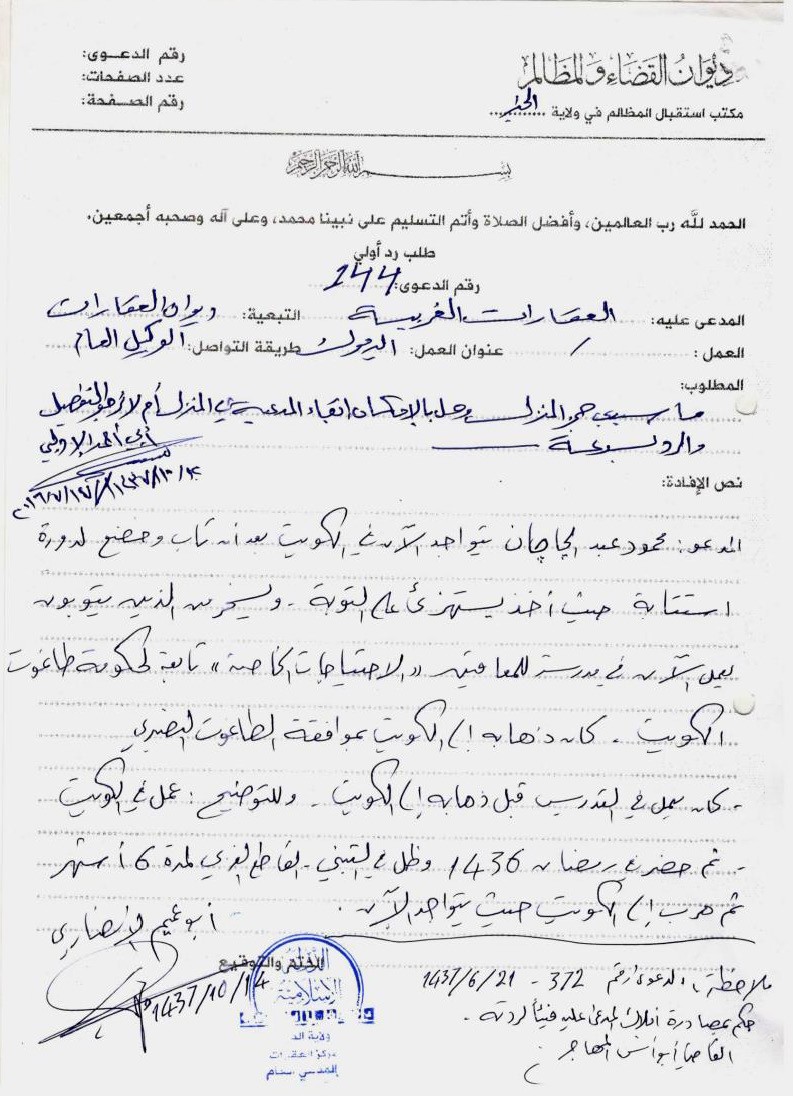 ديوان القضاء والمظالم
مكتب استقبال المظالم في ولاية الخير
رقم الدعوى:
عدد الصفحات:
رقم الصفحة:
بسم الله الرحمن الرحيم
الحمد لله رب العالمين، وأفضل الصلاة وأتم التسليم على نبينا محمد، وعلى آله وصحبه أجمعين.
طلب رد أولي
رقم الدعوى: 244
المدعى عليه: العقارات الغربية التبعية: ديوان العقارات
العمل: / عنوان العمل: طريقة التواصل: الوكيل العام
المطلوب:
ما سبب حجز المنزل وهل بالإمكان ابقاء المدعية في المنزل أم لا نرجو التفصيل
والرد بسرعة
نص الإفادة:
المدعو: محمود عبد يتواجد الآن في الكويت بعد أن تاب وخضع لدورة
استتابة حيث أخذ يستهزئ على التوبة - ويسخر من الذين يتوبون
يعمل الآن في مدرسة للمعاقين "الاحتياجات الخاصة" تابعة لحكومة طاغوت
الكويت - كان ذهابه إلى الكويت بموافقة الطاغوت النصيري
- كان يعمل في التدريس قبل ذهابه إلى الكويت - وللتوضيح: عمل في الكويت
- ثم حضر في رمضان 1436 وظل في التبني - القاطع الغربي لمدة 6 أشهر
ثم هرب إلى الكويت حيث يتواجد الآن.
الأنصاري
الختم والتوقيع
1437/10/14
الدولة
الإسلامية
مركز العقارات
ملاحظة: الدعوى رقم 372 - 1437/6/21
حكم بمصادرة أملاك المدعى عليه فيئاً لردته -
القاضي أبو أنس المهاجر